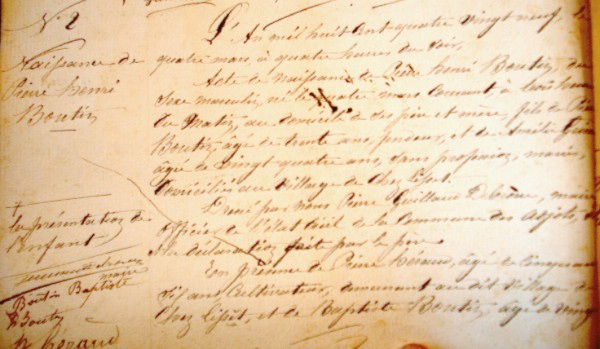 N° 2
Naissance de
Pierre henri
Boutin
la présentation de
l'enfant
maire
Boutin Baptiste
Boutin
héraud
L'An mil huit cent quatre vingt neuf, le
quatre mars, à quatre heures du soir,
Acte de naissance de Pierre henri Boutin, du
sexe masculin, né le quatre mars courant à trois heures
du matin, au domicile de ses père et mère, fils de Pierre
Boutin, âgé de trente ans, et de Amélie
âgée de vingt quatre ans, sans profession, mariés,
domiciliés au village de Chez
Dressé par nous Pierre Guillaud maire
officier de l'état civil de la Commune des Adjots,
la déclaration fait par le père
En présence de Pierre héraud, âgé de cinquante
six ans Cultivateur, demeurant au dit village de
Chez et de Baptiste Boutin, âgé de vingt